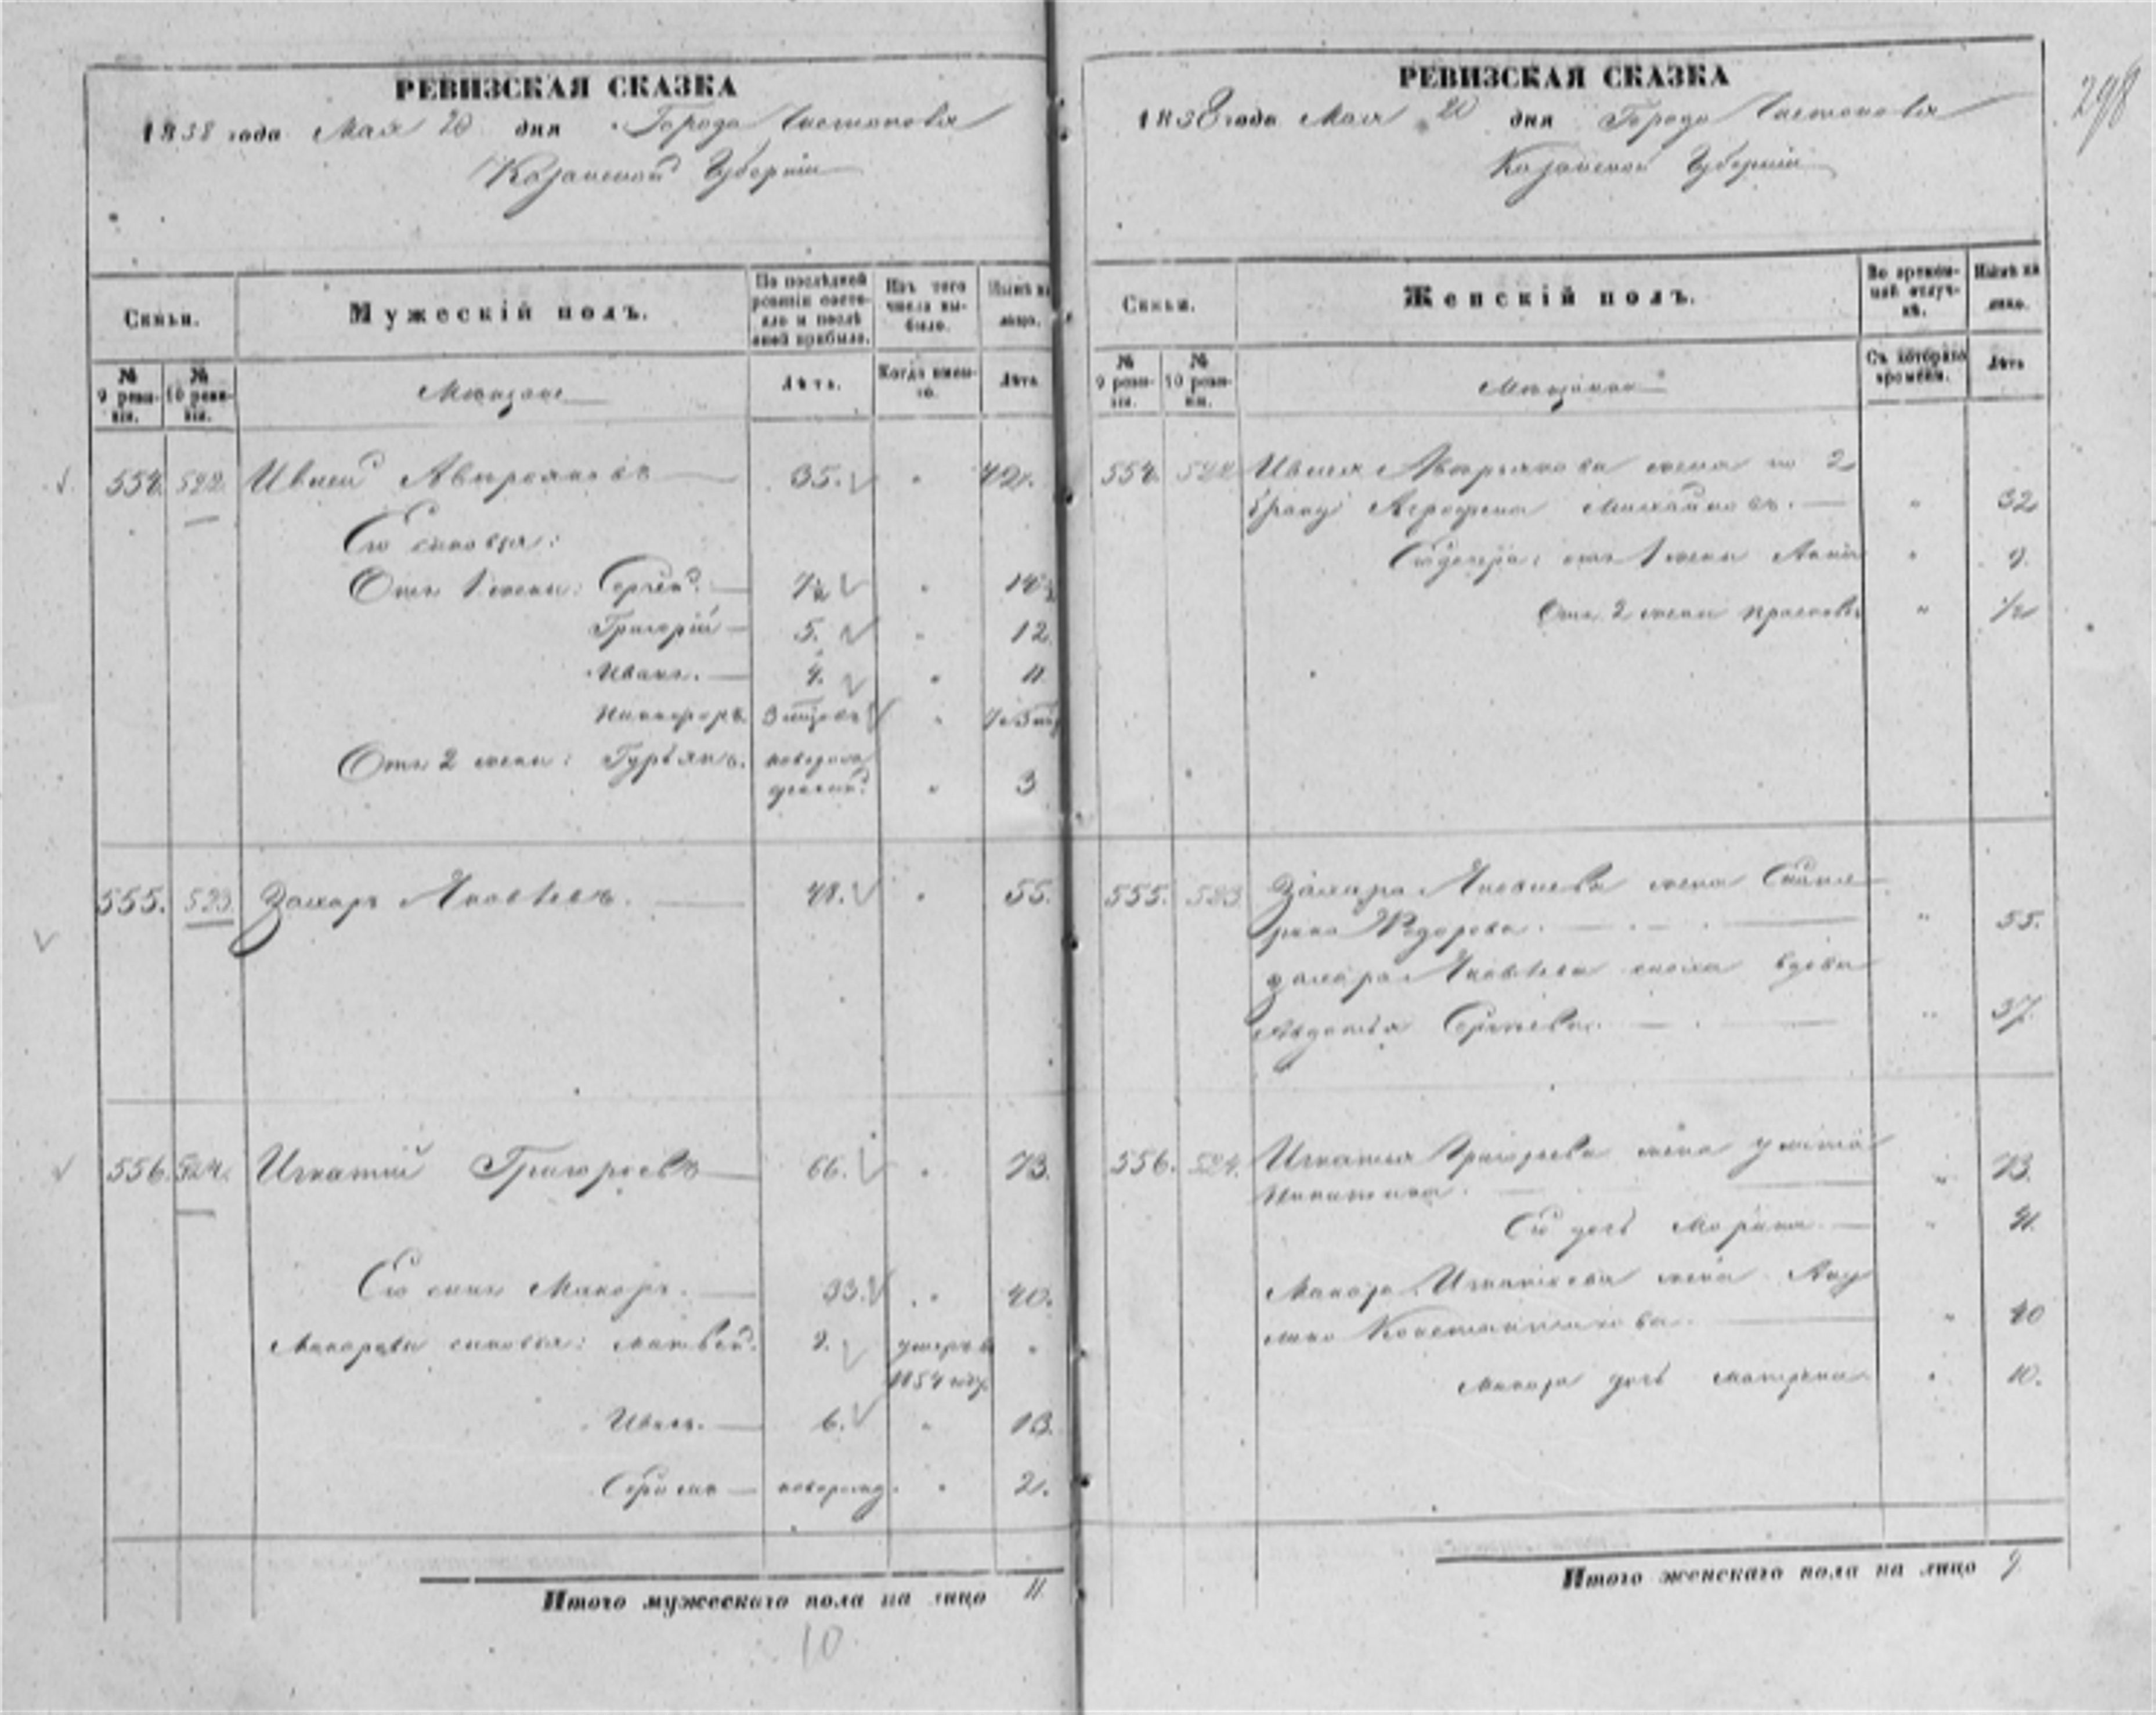 РЕВИЗСКАЯ СКАЗКА
1838 года Мая 20 дня Города Чистополя
Казанской Губерніи
Семьи.
Мужескій полъ.
По послѣдней ревизіи состояло и послѣ оной прибыло.
Изъ того числа выбыло.
Нынѣ на лицо.
№ 9 ревизіи.
№ 10 ревизіи.
Мѣщане
Лѣтъ.
Когда именно.
Лѣта
554. 522. Авирьяновъ 35. " 42.
Его сыновья:
Отъ 1 жены: Сергѣй. 7½ " 14½
Григорій 5. " 12
Иванъ. 4. " 11
Никифоръ. "
Отъ 2 жены: Гурьянъ. новорож
денный " 3
555. 523. Захаръ Яковлевъ. 48. " 55.
556. 524. Игнатій Григорьевъ 66. " 73.
Его сынъ Макаръ. 33. " 40.
Макаровы сыновья: Матвей. умеръ въ "
1854 году
6. " 13.
новорожд. " 2.
Итого мужескаго пола на лицо 11
10
298
РЕВИЗСКАЯ СКАЗКА
1858 года Мая 20 дня Города Чистополя
Казанской Губерніи
Семьи.
Женскій полъ.
Во временной отлучкѣ.
Нынѣ на лицо.
№ 9 ревизіи.
№ 10 ревизіи.
Мѣщане
Съ котораго времени.
Лѣта
554. 522 Авирьянова жена по 2
браку Аграфена Михайлова. " 32
Его дочери: отъ 1 жены Анна " 9
Отъ 2 жены Прасковья " ½
555. 523 Захара Яковлева жена
Федорова. " 55.
Захара Яковлева сноха вдова
Авдотья Сергѣева. " 37.
556. 524. Игнатья Григорьева жена Улита
Никитина. " 73.
Его дочь Марина. " 41.
Макара Игнатьева жена Аку
лина Константинова. " 40
Макара дочь Матрена " 10.
Итого женскаго пола на лицо 9